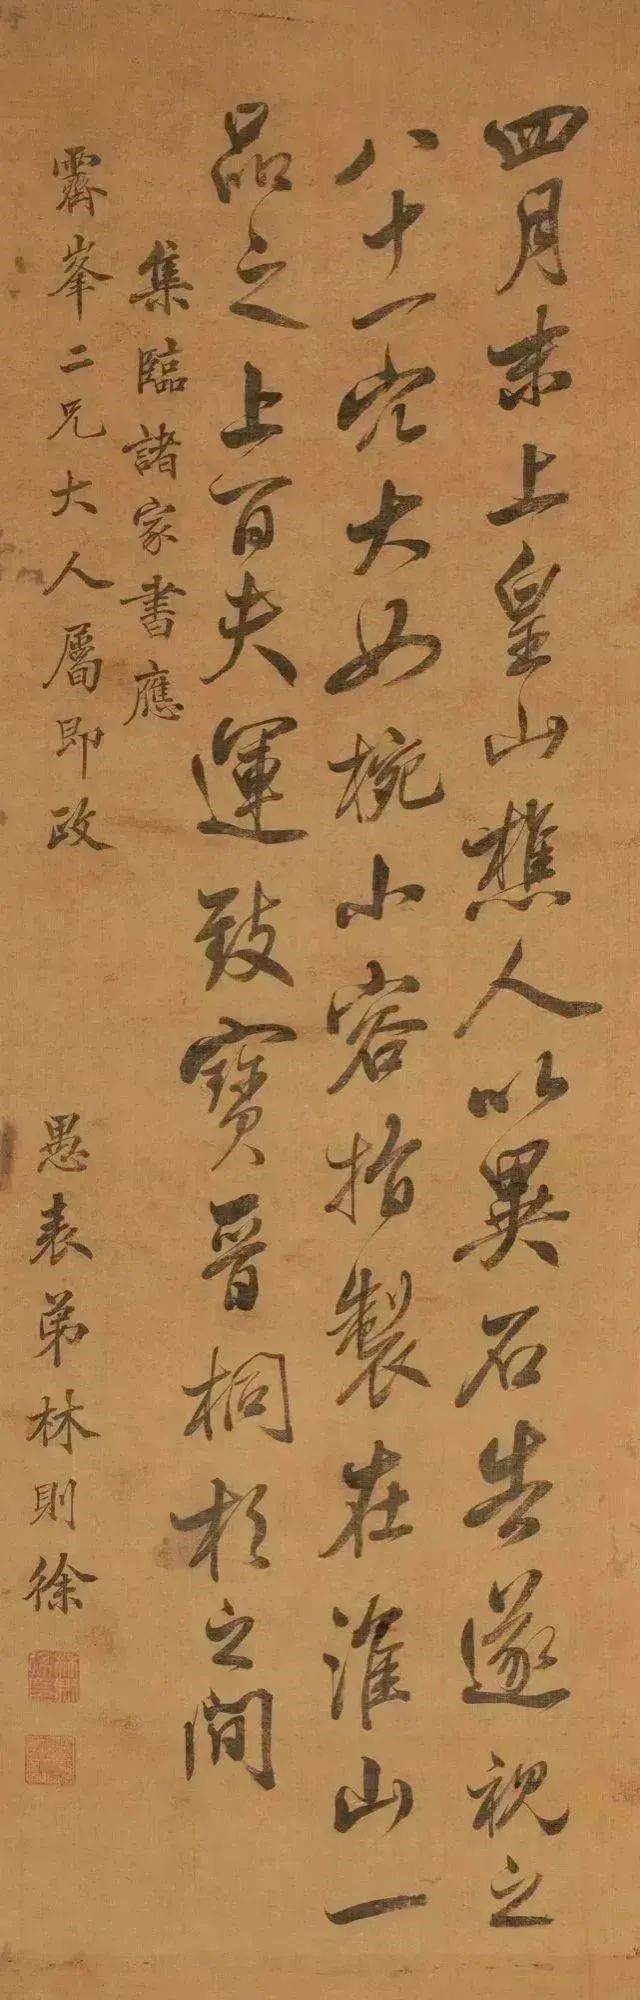 四月末上皇山樵人以異石告遂視之
八十一穴大如椀小容指製在淮山一
品之上百夫運致寶晉桐杉之間
集臨諸家書應
霽峯二兄大人屬即政
愚表弟林則徐